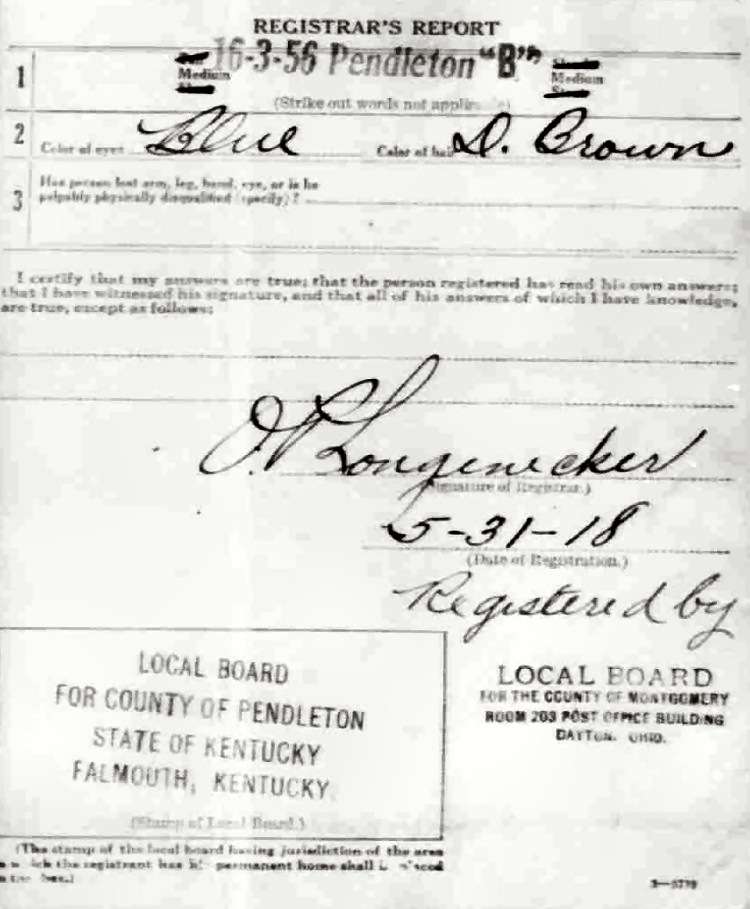 REGISTRAR'S REPORT
16-3-56 Pendleton "B"
1 Medium Medium
(Strike out words not
2 Color of eyes Blue Color of D. Brown
3 Has person lost arm, leg, hand, eye, or is he
palpably physically disqualified (specify)?
I certify that my answers are true; that the person registered has read his own answers;
that I have witnessed his signature, and that all of his answers of which I have knowledge,
are true, except as follows:
Longenecker
(Signature of Registrar.)
5-31-18
(Date of Registration.)
Registered by
LOCAL BOARD
FOR COUNTY OF PENDLETON
STATE OF KENTUCKY
FALMOUTH, KENTUCKY.
(Stamp of Local Board.)
LOCAL BOARD
FOR THE COUNTY OF MONTGOMERY
ROOM 203 POST OFFICE BUILDING
DAYTON, OHIO.
(The stamp of the local board having jurisdiction of the area
the registrant has permanent home shall
box.)